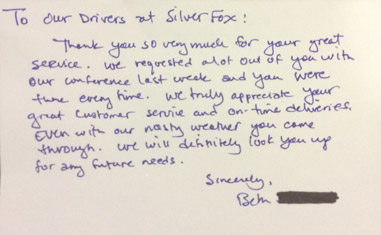 To our Drivers at Silver Fox:
Thank you so very much for your great
service. We requested alot out of you with
our conference last week and you were
there every time. We truly appreciate your
great customer service and on-time deliveries.
Even with our nasty weather you came
through. We will definitely look you up
for any future needs.
Sincerely,
Beth